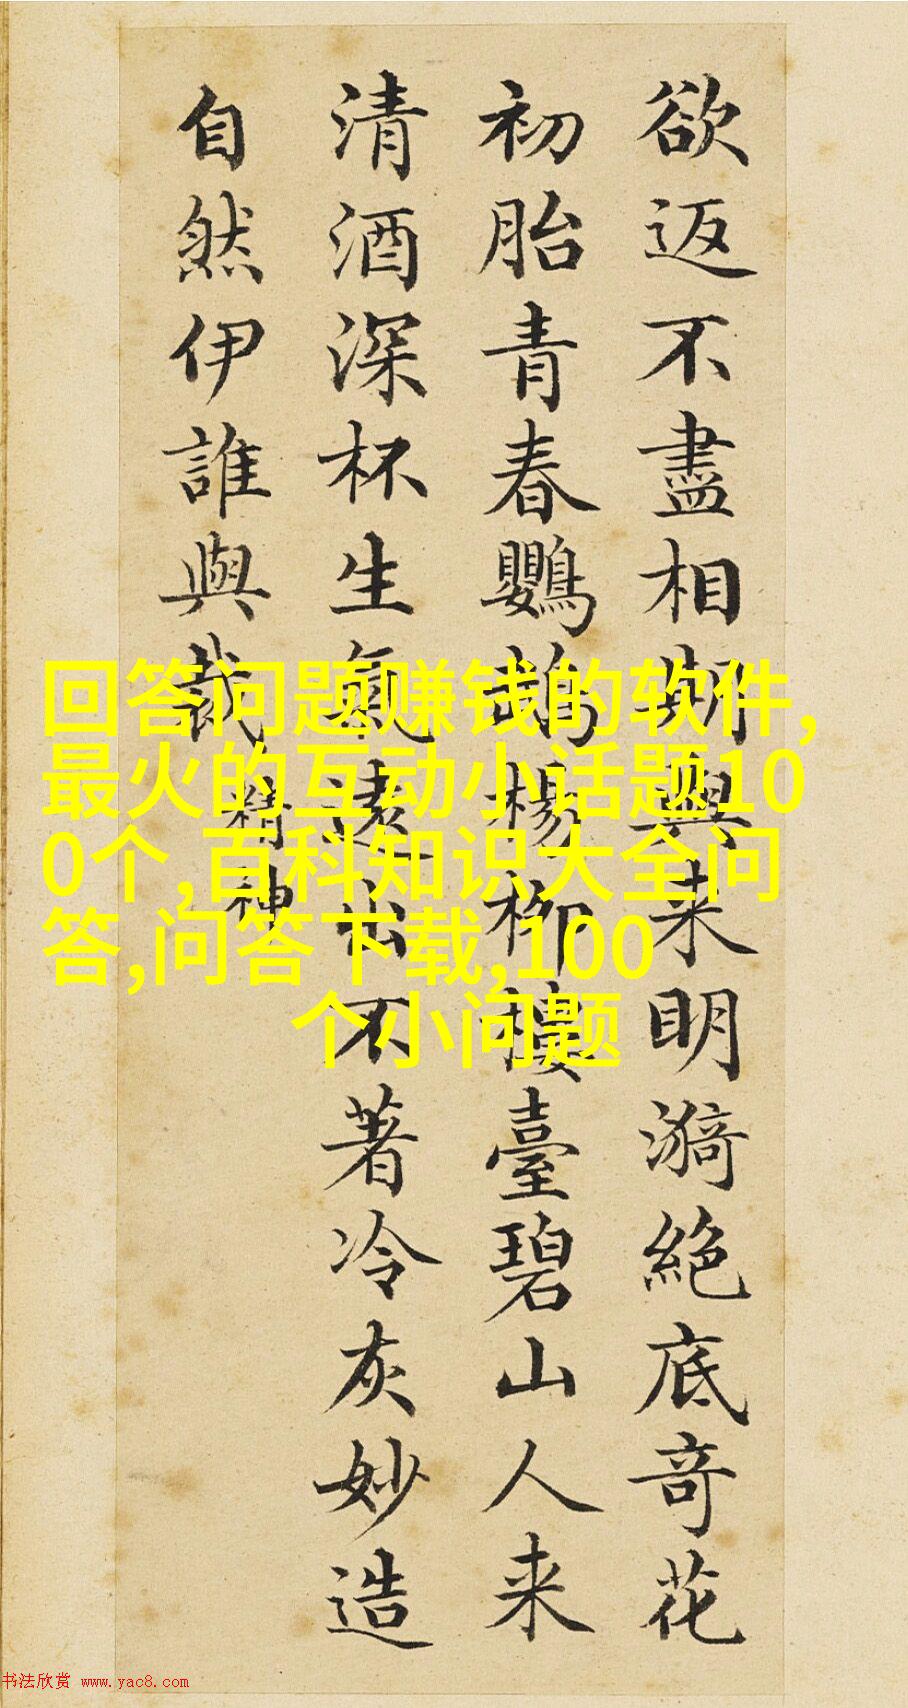 欲返不盡相期與来明漪絶底奇花
初胎青春鸚鵡楊柳樓臺碧山人来
清酒深杯生氣遠出不著冷灰妙造
自然伊誰與裁
精神
回答问题赚钱的软件,
最火的互动小话题10
0个,百科知识大全问
答,问答下载,100
个小问题
书法欣赏 www.yac8.com